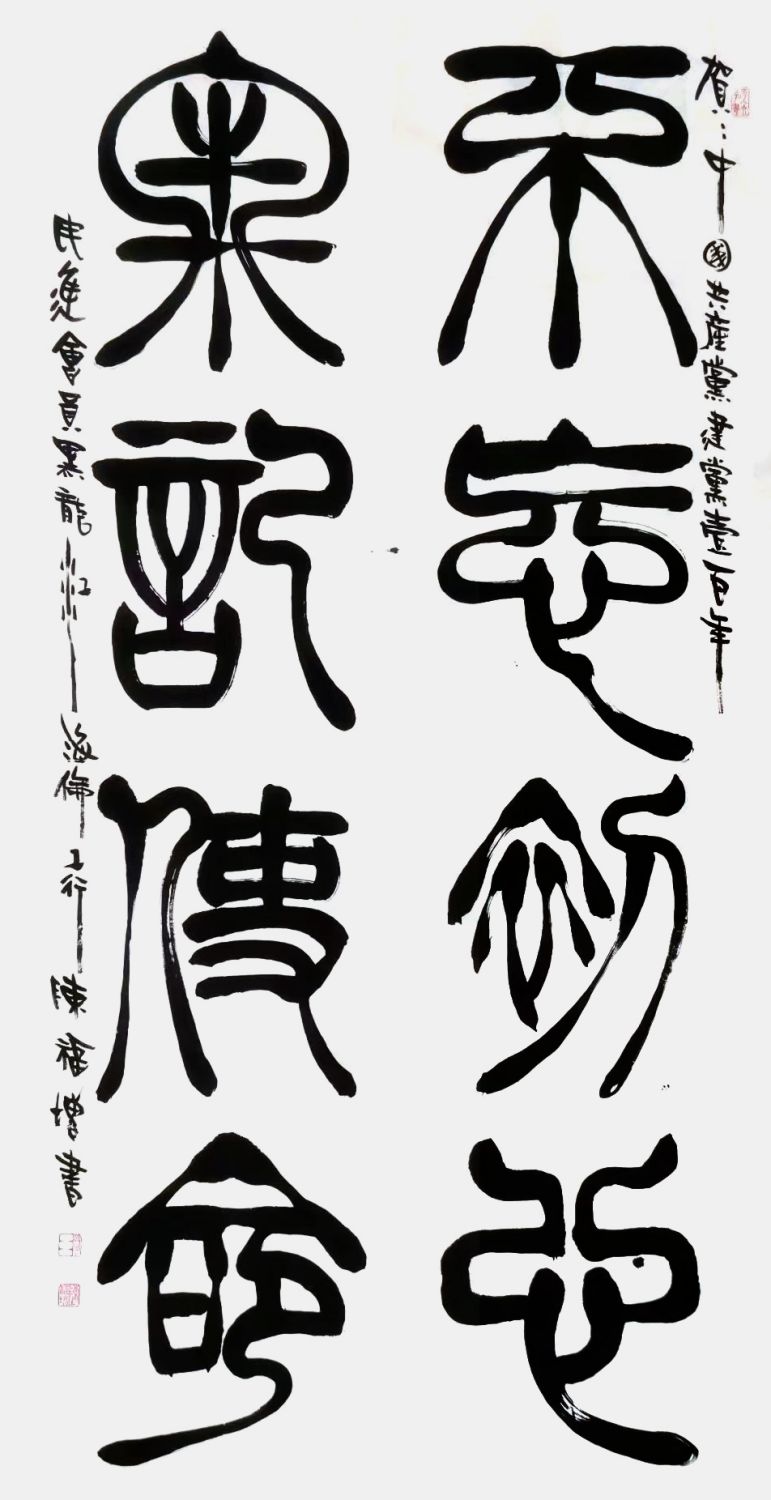 賀：中國共產黨建黨壹百年
不忘初心
牢記使命
民進會員黑龍江海倫工行陳福增書